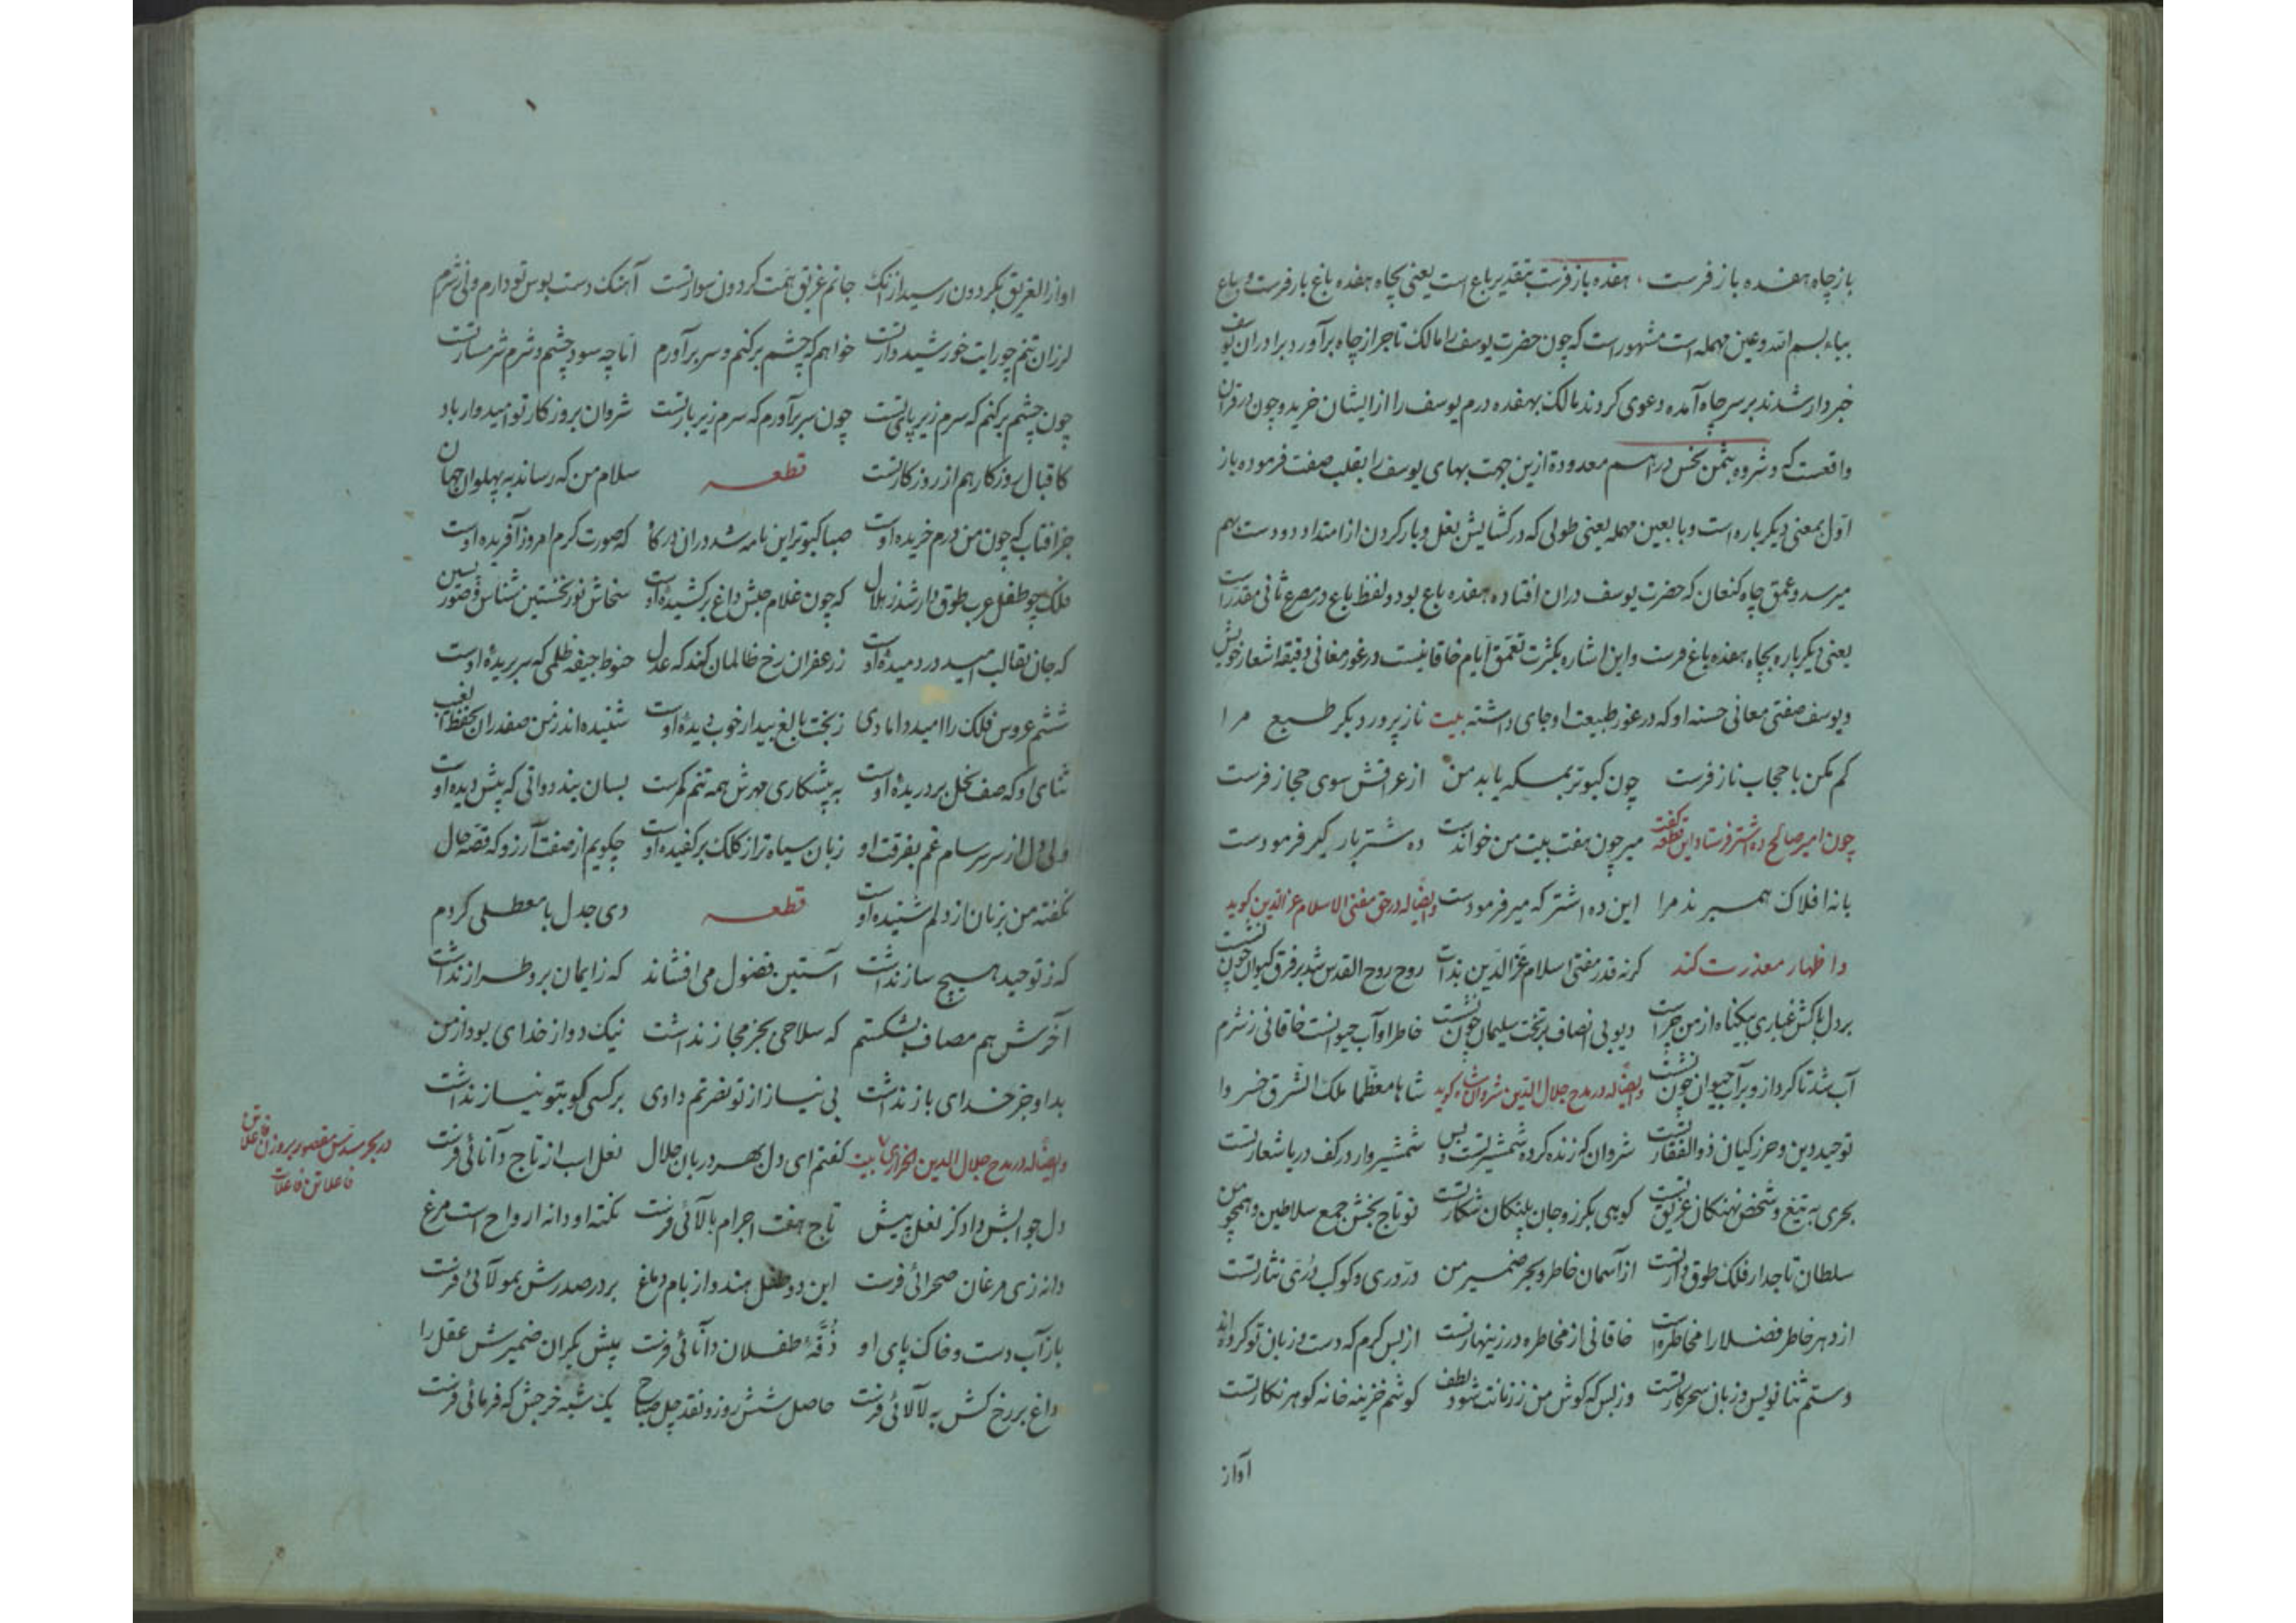 باز چاه هفده باز فرست ٠ هفده باز فرست بتقدیر باع است یعنی بچاه هفده باغ باز فرست و باع
بباء بسم الله و عین مهمله است مشهور است که چون حضرت یوسف را مالک تاجر از چاه برآورد برادران یوسف
خبردار شدند بر سر چاه آمده دعوی کردند مالک بهفده درم یوسف را از ایشان خرید و چون در قرآن
واقعست که و شروه بثمن بخس دراهم معدودة ازین جهت بهای یوسف را بقلب صفت فرموده باز
اول بمعنی دیگر باره است و باع بعین مهمله یعنی طولی که در گشایش بغل و باز کردن از امتداد دو دست بهم
میرسد و عمق چاه کنعان که حضرت یوسف دران افتاده هفده باع بود و لفظ باع در مصرع ثانی مقدر است
یعنی دیگر باره بچاه هفده باغ فرست و این اشاره بکثرت تعمق ایام خاقانیست در غور معانی دقیقه اشعار خویش
و یوسف صفتی معانی حسنه او که در غور طبیعت او جای داشته بیت ناز پرورد بکر طبع مرا
کم مکن با حجاب ناز فرست چون کبوتر بمکه یابد من از عراقش سوی حجاز فرست
چون امیر صالح ده اشتر فرستاد این قطعه گفت میر چون هفت بیت من خواندست ده شتر بار گیر فرمودست
با نه افلاک همبرند مرا این ده اشتر که میر فرمودست وایضاً له در حق مفتی الاسلام عز الدین گوید
و اظهار معذرت کند گرنه قدر مفتی اسلام عز الدین بذات روح روح القدس شد بر فرق کیوان چون نشست
بر دل پاکش غباری بیگناه از من چراست دیو بی انصاف بر تخت سلیمان چون نشست خاطر او آب حیوانست خاقانی ز شرم
آب شد تا گرد از و بر آب حیوان چون نشست وایضاً له در مدح جلال الدین شروانشاه گوید شاها معظما ملک الشرق خسروا
توحید دین و حرز کیان ذوالفقار تست شروان که زنده کرده شمشیر تست و بس شمشیروار در کف دریا شعار تست
بحری به تیغ و شخص نهنگان غریق تست کوهی بگرز و جان پلنگان شکار تست تو تاج بخش جمع سلاطین و همچو من
سلطان تاجدار فلک طوق دار تست از آسمان خاطر و بحر ضمیر من در دری و کوکب دری نثار تست
از دهر خاطر فضلا را مخاطره است خاقانی از مخاطره در زینهار تست از بس کرم که دست و زبان تو کرده‌اند
دستم ثنا نویس و زبان سحر کار تست وز بس که گوش من ز زبانت شنود لطف گوشم خزینه خانه گوهر نگار تست
آواز
اواز الغریق بگردون رسید از انک جانم غریق همت گردون سوار تست آهنگ دست بوس تو دارم ولی ز شرم
لرزان تنم چو رایت خورشید دار تست خواهم که چشم بر کنم و سر بر آورم اما چه سود چشم و شرم شرمسار تست
چون چشم بر کنم که سرم زیر پای تست چون سر برآورم که سرم زیر بار تست شروان بروزگار تو امیدوار باد
کاقبال روزگار هم از روزگار تست قطعه سلام من که رساند به پهلوان جهان
جز افتاب که چون من درم خریده اوست صبا کبوتر این نامه شد دران درگاه که صورت کرم امروز آفریده اوست
فلک چو طفل عرب طوق دار شد ز هلال که چون غلام حبش داغ بر کشیده اوست سخاش نور نخستین شناس و صور پسین
که جان بقالب امید در دمیده اوست ز زعفران رخ ظالمان کند که عدل حنوط جیفه ظلمی که سر بریده اوست
ششم عروس فلک را امید دامادی ز بخت بالغ بیدار خوب دیده اوست شنیده‌اند ز من صفدران بحفظ الغیب
ثنای او که صف بخل بر دریده اوست به پیشکاری مهرش همه تنم کمرست بسان بند دواتی که پیش دیده اوست
ولی دل از سر سرسام غم بفرقت او زبان سیاه تر از کلک بر کفیده اوست چگویم از صفت آرزو که قصه حال
نگفته من بزبان از دلم شنیده اوست قطعه دی جدل با معطلی کردم
که ز توحید هیچ ساز نداشت آستین فضول می افشاند که ز ایمان برو طراز نداشت
آخرش هم مصاف بشکستم که سلاحی بجز مجاز نداشت نیک دو از خدای بود از من
بد او جز خدای باز نداشت بی نیاز از تو نفرتم دادی بر کسی کو بتو نیاز نداشت
وایضاً له در مدح جلال الدین الخزاری بیت گفتم ای دل بهر دربان جلال نعل اسب از تاج دانائی فرست
دل جوابش داد کز نعل پیش تاج هفت اجرام بالائی فرست نکته او دانه ارواح است مرغ
دانه زی مرغان صحرائی فرست این دو طفل هندو از بام دماغ بر در صدرش بمولائی فرست
باز آب دست و خاک پای او ذقهٔ طفلان دانائی فرست پیش بکران ضمیرش عقل را
داغ بر رخ کش به لالائی فرست حاصل شش روز و نقد چل صباح یک شبه خرجش که فرمائی فرست
در بحر مسدس مقصور بر وزن فاعلاتن
فاعلاتن فاعلات